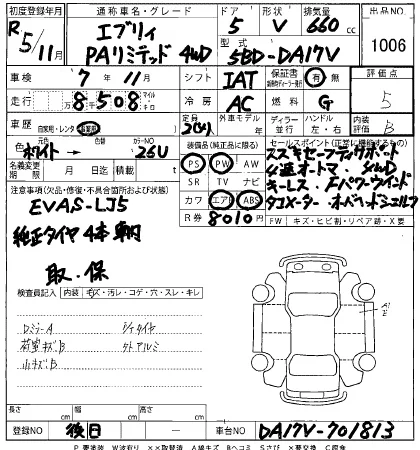 初度登録年月 通称車名・グレード ドア 形状 排気量 出品NO
R 5/11月 エブリィ PAリミテッド 4WD 5 V 660 cc 1006
型式 5BD-DA17V
車検 7年 11月 シフト IAT 保証書 有 無 評価点
走行 8万8千508 マイル キロ 冷房 AC 燃料 G 5
車歴 自家用・レンタ 定員 2(4)人 外車モデル年 ディーラー 並行 ハンドル 左・右 内装 B
色 ホワイト 元色 色替 カラーNO 26U
装備品(純正品に限る) セールスポイント(正常に機能するもの)
名義変更期限 月 日 積載 t
PS PW AW スズキセーフティサポート
SR TV ナビ 4速オートマ. 4WD
カワ エアB ABS キーレス. Fパワーウインド
R券 8010円 タコメーター・オーバーヘッドシェルフ
FW キズ・ヒビ割・リペア跡・X要
注意事項(欠品・修復・不具合箇所および状態)
EVAS-LJ5
純正タイヤ4本車内
取.保
検査員記入 内装 キズ・汚レ・コゲ・穴・スレ・キレ
DミラーA
荷室キズB
小キズB
A1
E
長さ cm 幅 cm 高さ cm
登録NO 後日 車台NO DA17V-701813
P 要塗装 W波有り ××取替済 A線キズ Bヘコミ Sさび ×要交換 C腐食